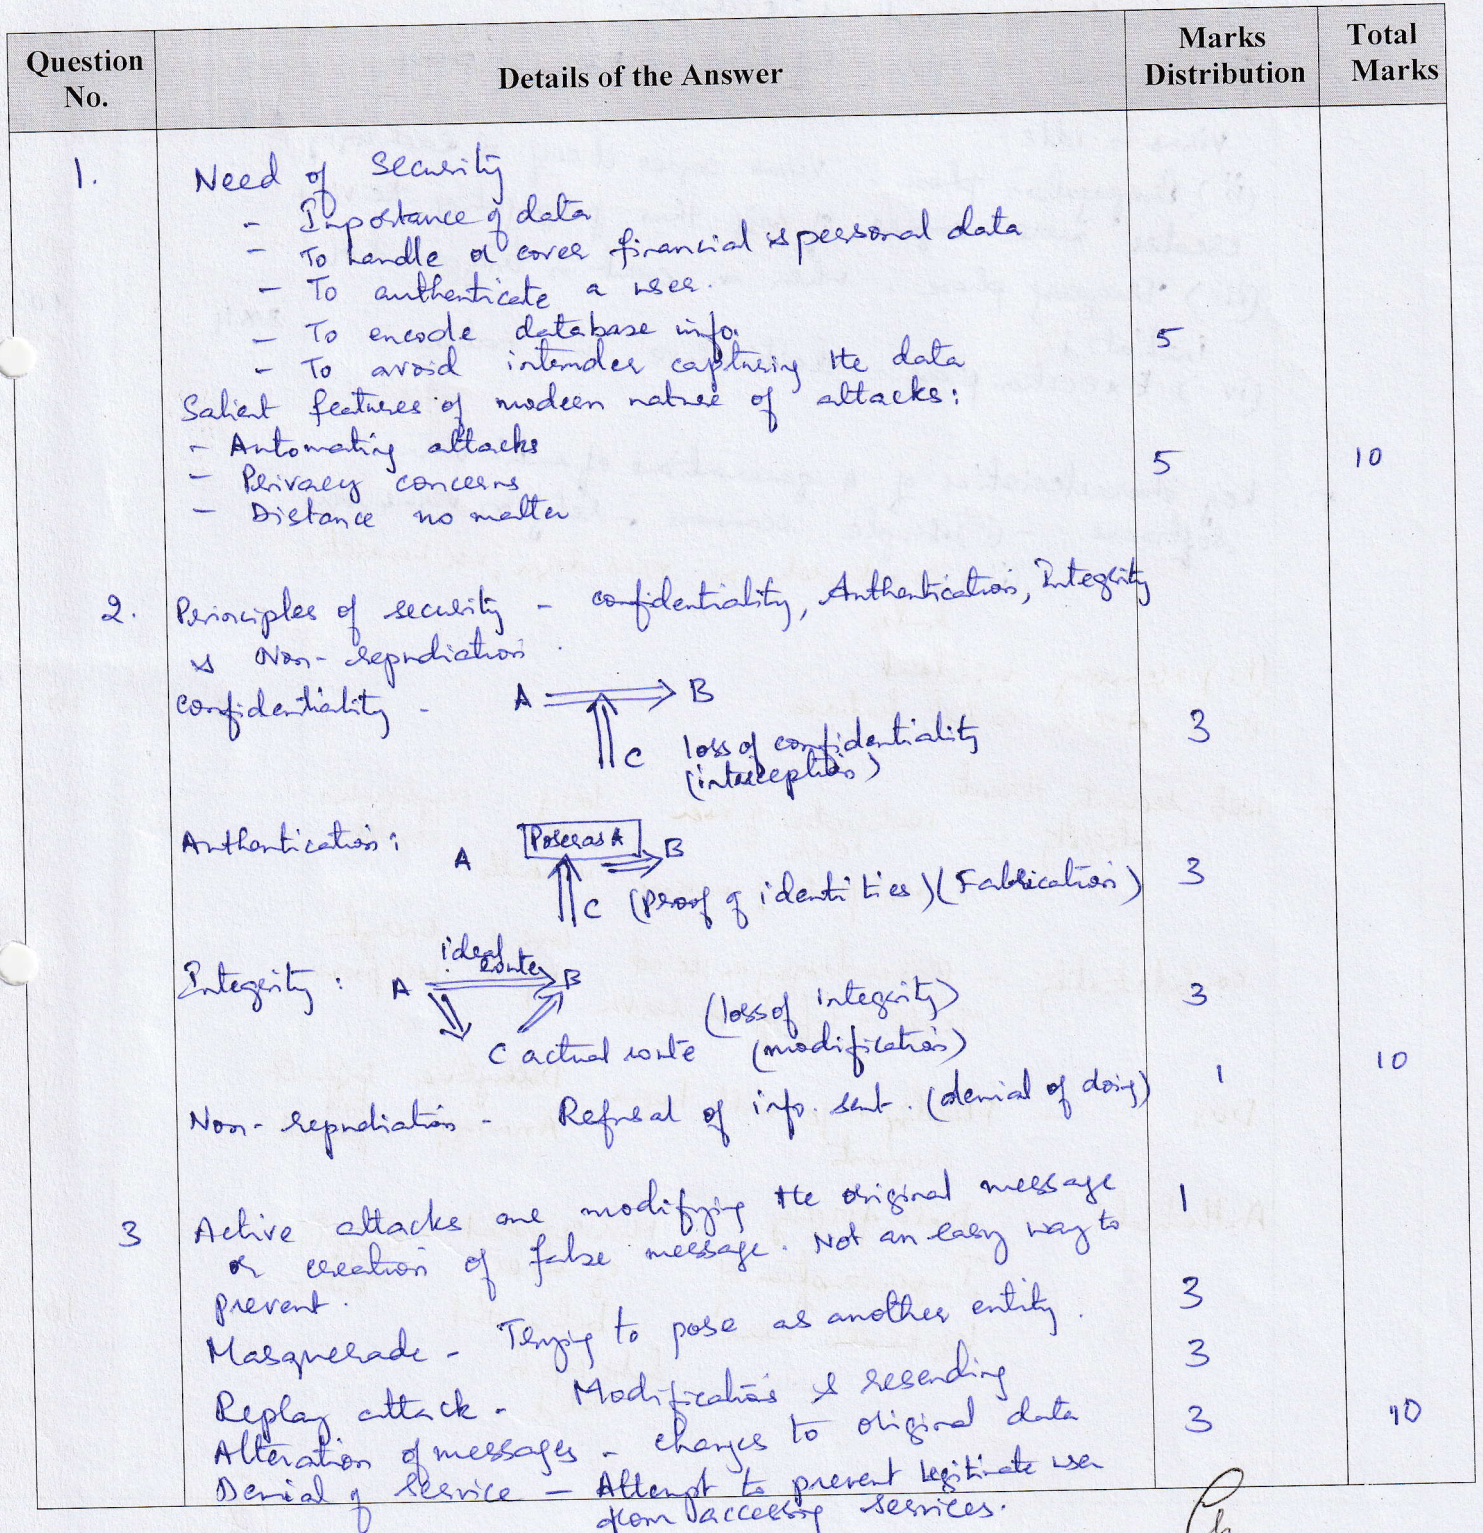 Question No.
Details of the Answer
Marks Distribution
Total Marks
1.
Need of Security
- Importance of data
- To handle or cover financial & personal data
- To authenticate a user.
- To encode database info.
- To avoid intruder capturing the data
5
Salient features of modern nature of attacks:
- Automating attacks
- Privacy concerns
- Distance no matter
5
10
2. Principles of security - confidentiality, Authentication, Integrity
& Non-repudiation.
Confidentiality - A B
C loss of confidentiality
(interception)
3
Authentication: A Poses as A B
C (Proof of identities) (Fabrication)
3
Integrity: A ideal route B
(loss of integrity)
3
C actual route (modification)
Non-repudiation - Refusal of info. sent. (denial of doing)
1
10
3 Active attacks are modifying the original message
1
or creation of false message. Not an easy way to
prevent.
Masquerade - Trying to pose as another entity.
3
Replay attack - Modification & resending
3
Alteration of messages - changes to original data
3
10
Denial of service - Attempt to prevent legitimate user
from accessing services.